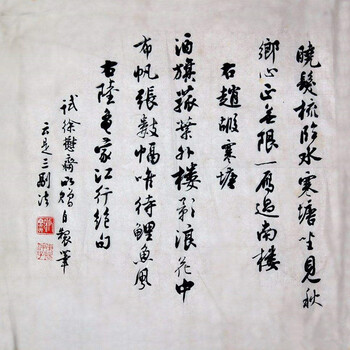 曉髮梳臨水寒塘坐見秋
鄉心正無限一雁過南樓
右趙嘏寒塘
酒旗菰葉外樓影浪花中
布帆張數幅唯待鯉魚風
右陸龜蒙江行絕句
試徐齋所贈自製筆
云是三副法